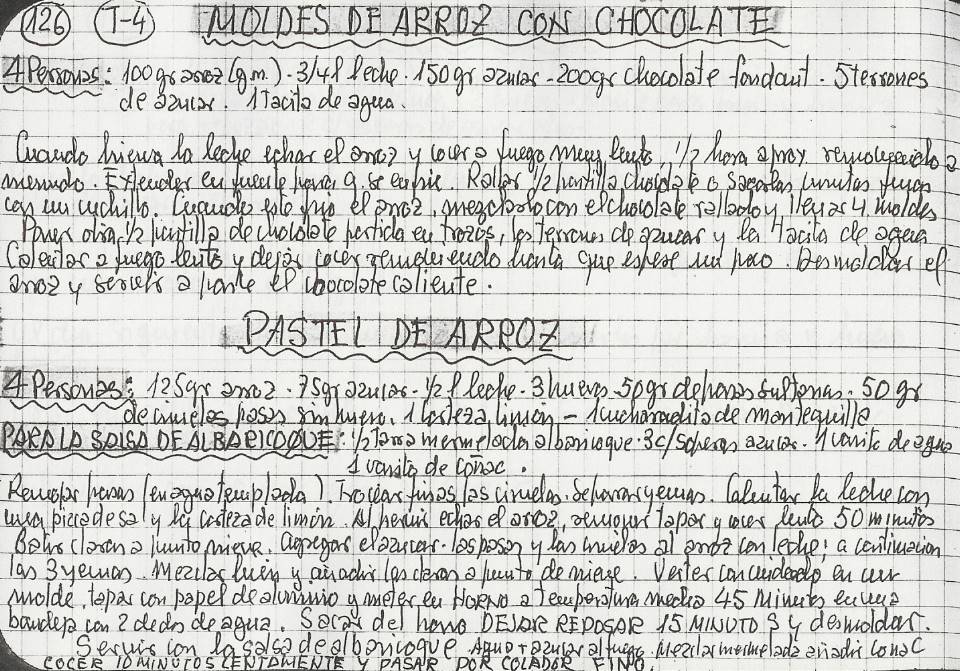 126 T-4 MOLDES DE ARROZ CON CHOCOLATE
4 Personas: 100gr arroz (g.m.) - 3/4 l leche - 150gr azucar - 200gr chocolate fondant - 5 terrones
de azucar. 1 Tacita de agua.
Cuando hierva la leche echar el arroz y cocer a fuego muy lento, 1/2 hora aprox removiendolo a
menudo. Extender en fuente para q. se enfrie. Rallar 1/2 pastilla chocolate o sacarlas virutas finas
con un cuchillo. Cuando este frio el arroz, mezclarlo con el chocolate rallado y llenar 4 moldes
Poner otra 1/2 pastilla de chocolate partida en trozos, los terrones de azucar y la tacita de agua
Calentar a fuego lento y dejar cocer removiendo hasta que espese un poco. Desmoldar el
arroz y servir a parte el chocolate caliente.
PASTEL DE ARROZ
4 Personas: 125gr arroz - 75gr azucar - 1/2 l leche - 3 huevos - 50gr de pasas sultanas - 50 gr
de ciruelas pasas sin hueso. 1 corteza limón - 1 cucharadita de mantequilla
PARA LA SALSA DE ALBARICOQUE: 1/2 tarro mermelada albaricoque - 3c/soperas azucar - 1 vasito de agua
1 vasito de coñac.
Remojar pasas (en agua templada). Trocear finas las ciruelas. Separar yemas. Calentar la leche con
una pizca de sal y la corteza de limón. Al hervir echar el arroz, remover tapar y cocer lento 50 minutos
Batir claras a punto nieve. Agregar el azucar - las pasas y las ciruelas al arroz con leche; a continuacion
las 3 yemas. Mezclar bien y añadir las claras a punto de nieve. Verter con cuidado en un
molde, tapar con papel de aluminio y meter en HORNO a temperatura media 45 Minutos en una
bandeja con 2 dedos de agua. Sacar del horno DEJAR REPOSAR 15 MINUTOS y desmoldar.
Servir con la salsa de albaricoque Agua + azucar al fuego. Mezclar mermelada añadir coñaC
COCER 10 MINUTOS LENTAMENTE Y PASAR POR COLADOR FINO.